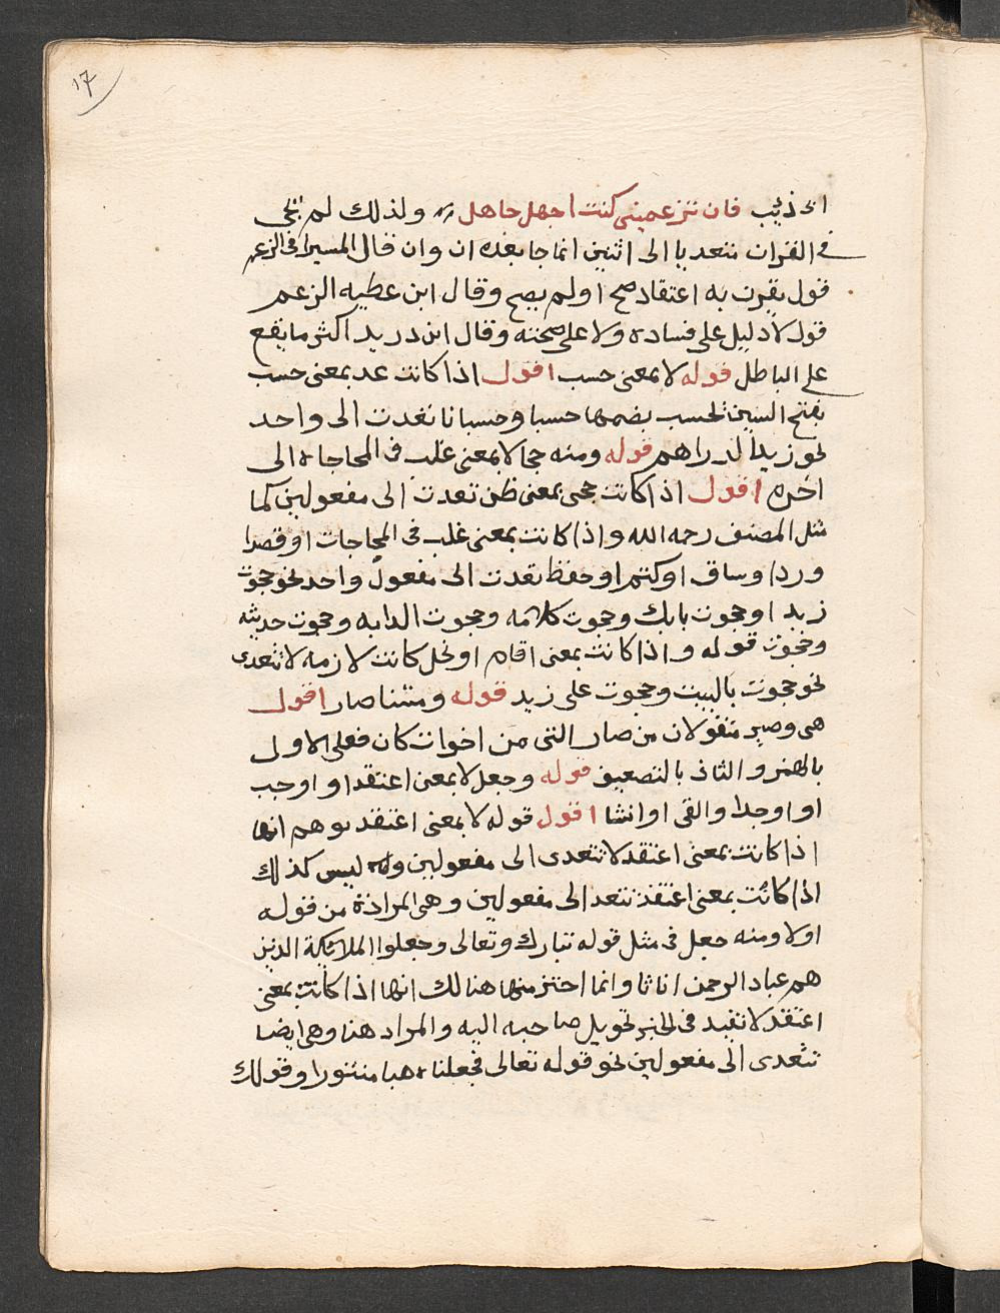 17
ابى ذئيب فان تزعمينى كنت اجهل جاهل ولذلك لم يجى
فى القران متعديا الى اثنين انما جا بعده ان وان قال السيرافى الزعم
قول يقرن به اعتقاد صح اولم يصح وقال ابن عطيه الزعم
قول لا دليل على فساده ولا على صحته وقال ابن دريد اكثر ما يقع
على الباطل قوله لا بمعنى حسب اقول اذا كانت عد بمعنى حسب
بفتح السين تحسب بضمها حسبا وحسبانا تعدت الى واحد
نحو زيد الدراهم قوله ومنه حجا لا بمعنى غلب فى المحاجاه الى
اخره اقول اذا كانت حجى بمعنى ظن تعدت الى مفعولين كما
مثل المصنف رحمه الله واذا كانت بمعنى غلب فى المحاجات او قصد ا
و رد ا وساق او كتم او حفظ تعدت الى مفعول واحد نحو حجوت
زيد ا وحجوت بابك وحجوت كلامه وحجوت الدابه وحجوت حديثه
وحجوت قوله واذا كانت بمعنى اقام او بخل كانت لازمه لا تتعدى
نحو حجوت بالبيت وحجوت على زيد قوله ومثنا صار اقول
هى وصير منقولان من صار التى من اخوات كان فعلى الاول
بالهمز والثانى بالتضعيف قوله وجعل لا بمعنى اعتقد او اوجب
او اوجد او القى او انشا اقول قوله لا بمعنى اعتقد يوهم انها
اذا كانت بمعنى اعتقد لا تتعدى الى مفعولين وله ليس كذلك
اذا كانت بمعنى اعتقد تتعد الى مفعولين وهى المرادة من قوله
اولا ومنه جعل فى مثل قوله تبارك وتعالى وجعلوا الملائكة الذين
هم عباد الرحمن اناثا وانما احترز منها هنالك انها اذا كانت بمعنى
اعتقد لا تفيد فى الخبر تحويل صاحبه اليه والمراد هنا وهى ايضا
تتعدى الى مفعولين نحو قوله تعالى فجعلناه هبا منثورا وقولك